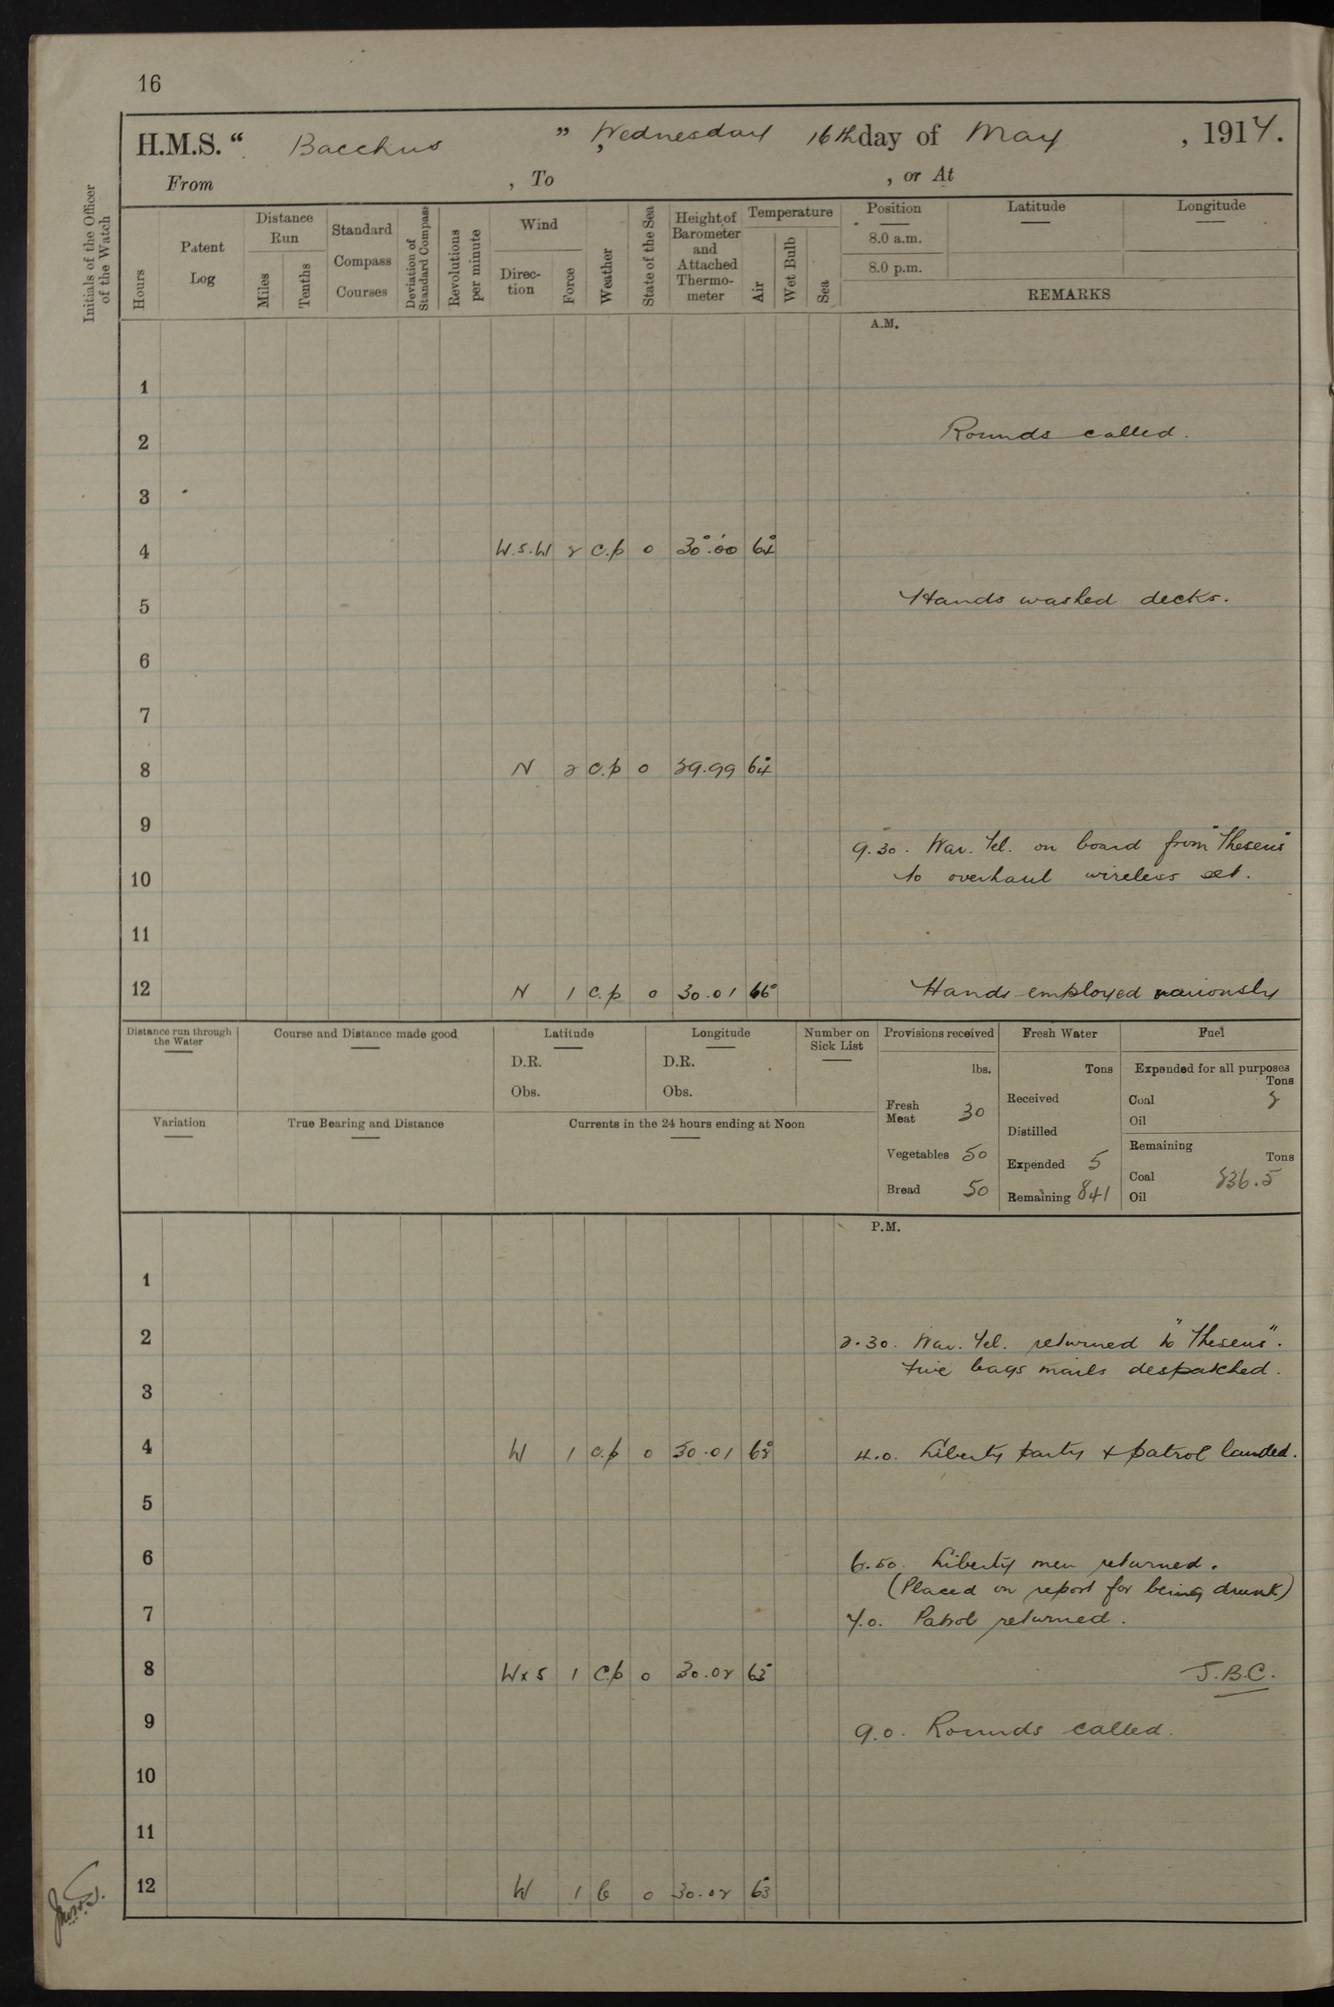 16
H.M.S. “ Bacchus ”, Wednesday 16th day of May , 1917.
From , To , or At
Initials of the Officer of the Watch
Hours
Patent Log
Distance Run
Miles
Tenths
Standard Compass Courses
Deviation of Standard Compass
Revolutions per minute
Wind
Direc-tion
Force
Weather
State of the Sea
Height of Barometer and Attached Thermo-meter
Temperature
Air
Wet Bulb
Sea
Position
8.0 a.m.
8.0 p.m.
Latitude
Longitude
REMARKS
A.M.
1
2 Rounds called.
3
4 W.S.W 2 c.p 0 30°.00 64°
5 Hands washed decks.
6
7
8 N 2 c.p 0 29.99 64°
9
9.30. War. Tel. on board from "Theseus"
10 to overhaul wireless set.
11
12 N 1 c.p 0 30.01 66° Hands employed variously
Distance run through the Water
Course and Distance made good
Latitude
D.R.
Obs.
Longitude
D.R.
Obs.
Number on Sick List
Provisions received
lbs.
Fresh Meat 30
Vegetables 50
Bread 50
Fresh Water
Tons
Received
Distilled
Expended 5
Remaining 841
Fuel
Expended for all purposes
Tons
Coal 2
Oil
Remaining
Tons
Coal 836.5
Oil
Variation
True Bearing and Distance
Currents in the 24 hours ending at Noon
P.M.
1
2 2.30. War. Tel. returned to "Theseus".
Five bags mails despatched.
3
4 W 1 c.p 0 30.01 68° 4.0. Liberty party & patrol landed.
5
6 6.50. Liberty men returned.
(Placed on report for being drunk)
7 7.0. Patrol returned.
8 W x S 1 c.p 0 30.02 63° J.B.C.
9 9.0. Rounds called.
10
11
12 W 1 c 0 30.02 63°